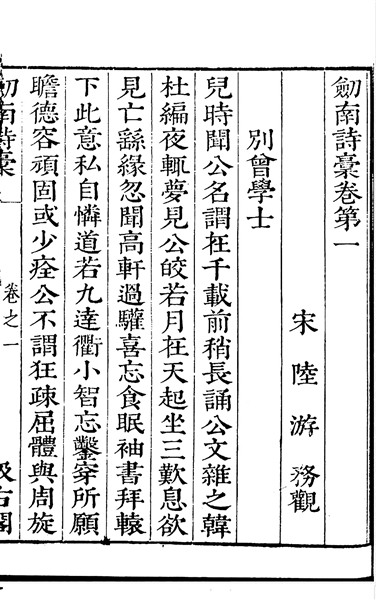 劒南詩稾卷第一
宋 陸 游 務觀
別曾學士
兒時聞公名謂在千載前稍長誦公文雜之韓
杜編夜輒夢見公皎若月在天起坐三歎息欲
見亡繇緣忽聞高軒過驩喜忘食眠袖書拜轅
下此意私自憐道若九達衢小智忘鑿穿所願
瞻德容頑固或少痊公不謂狂疎屈體與周旋
劒南詩稾
卷之一
汲古閣